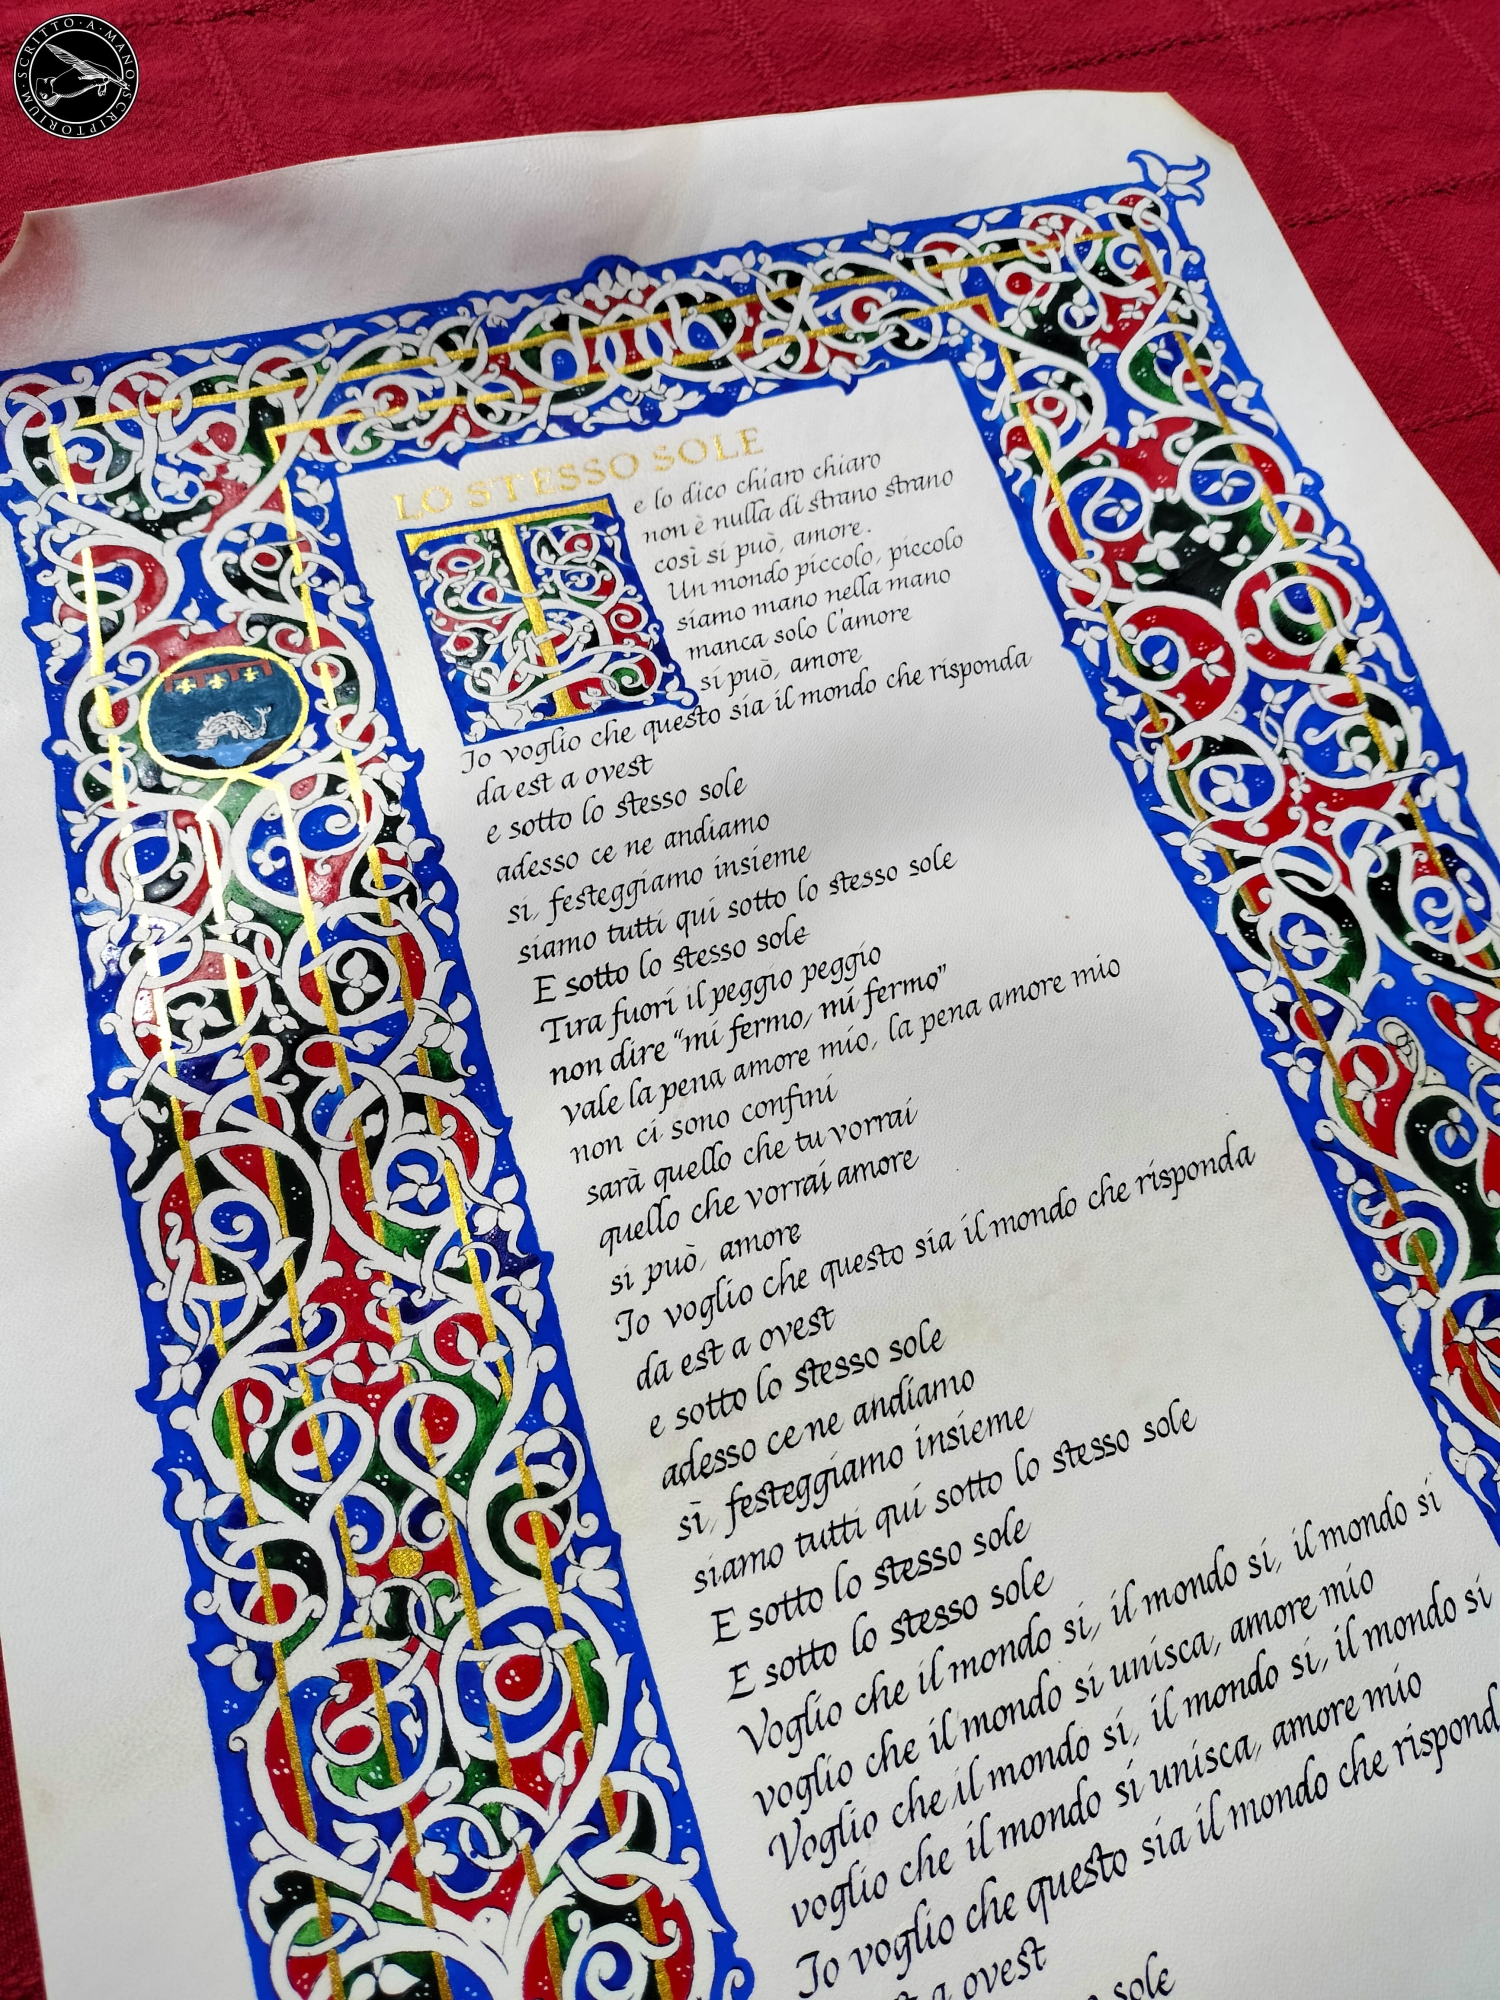 SCRITTO·A·MANO·SCRIPTORIUM·
LO STESSO SOLE
Te lo dico chiaro chiaro
non è nulla di strano strano
così si può, amore.
Un mondo piccolo, piccolo
siamo mano nella mano
manca solo l'amore
si può, amore
Io voglio che questo sia il mondo che risponda
da est a ovest
e sotto lo stesso sole
adesso ce ne andiamo
sì, festeggiamo insieme
siamo tutti qui sotto lo stesso sole
E sotto lo stesso sole
Tira fuori il peggio peggio
non dire "mi fermo, mi fermo"
vale la pena amore mio, la pena amore mio
non ci sono confini
sarà quello che tu vorrai
quello che vorrai amore
si può, amore
Io voglio che questo sia il mondo che risponda
da est a ovest
e sotto lo stesso sole
adesso ce ne andiamo
sì, festeggiamo insieme
siamo tutti qui sotto lo stesso sole
E sotto lo stesso sole
E sotto lo stesso sole
Voglio che il mondo si, il mondo si, il mondo si
voglio che il mondo si unisca, amore mio
Voglio che il mondo si, il mondo si, il mondo si
voglio che il mondo si unisca, amore mio
Io voglio che questo sia il mondo che rispond
a ovest
sole